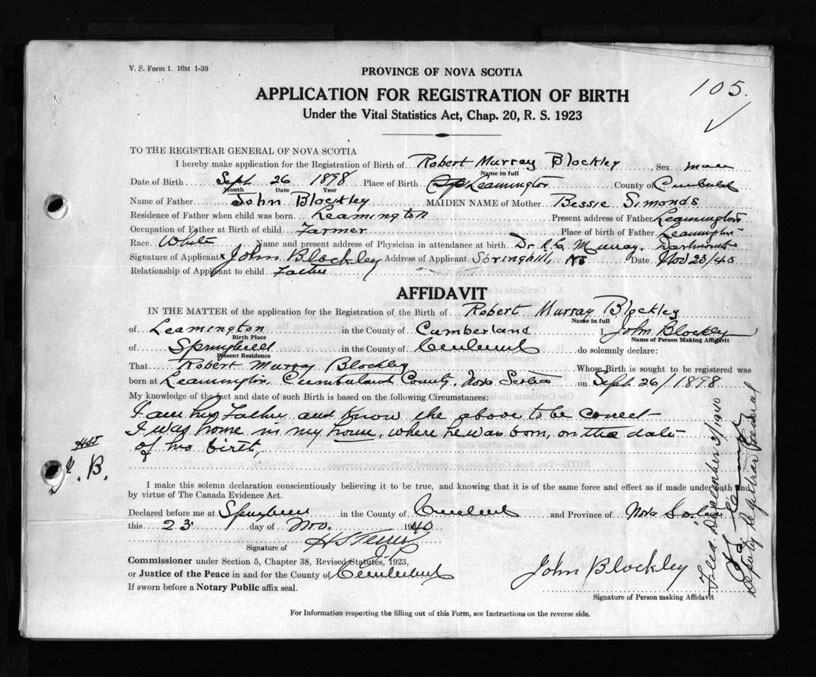 V. S. Form 1. 10M 1-39
105.
PROVINCE OF NOVA SCOTIA
APPLICATION FOR REGISTRATION OF BIRTH
Under the Vital Statistics Act, Chap. 20, R. S. 1923
TO THE REGISTRAR GENERAL OF NOVA SCOTIA
I hereby make application for the Registration of Birth of Robert Murray Blockley Sex male
Name in full
Date of Birth Sept 26 1898 Place of Birth Leamington County of Cumberland
Month Date Year
Name of Father John Blockley MAIDEN NAME of Mother Bessie Simonds
Residence of Father when child was born Leamington Present address of Father Leamington
Occupation of Father at Birth of child Farmer Place of birth of Father Leamington
Race. White Name and present address of Physician in attendance at birth. Dr. Murray, Dartmouth
Signature of Applicant x John Blockley Address of Applicant Springhill, NS Date Nov 23/40
Relationship of Applicant to child Father
AFFIDAVIT
IN THE MATTER of the application for Registration of the Birth of Robert Murray Blockley
Name in full
of Leamington in the County of Cumberland I, John Blockley
Birth Place Name of Person Making Affidavit
of Springhill in the County of Cumberland do solemnly declare:
Present Residence
That Robert Murray Blockley Whose Birth is sought to be registered was
born at Leamington, Cumberland County, Nova Scotia on Sept. 26/1898
My knowledge of the fact and date of such Birth is based on the following Circumstances:
I am his Father and know the above to be correct
I was home in my house, where he was born, on the date
of his birth,
B.
I make this solemn declaration conscientiously believing it to be true, and knowing that it is of the same force and effect as if made under oath and
by virtue of The Canada Evidence Act.
Declared before me at Springhill in the County of Cumberland and Province of Nova Scotia
this 23 day of Nov. 1940
Signature of
J.P.
Commissioner under Section 5, Chapter 38, Revised Statutes, 1923,
or Justice of the Peace in and for the County of Cumberland
If sworn before a Notary Public affix seal.
John Blockley
Signature of Person making Affidavit
For Information respecting the filling out of this Form, see Instructions on the reverse side.
Filed December 3/1940
Deputy Registrar General